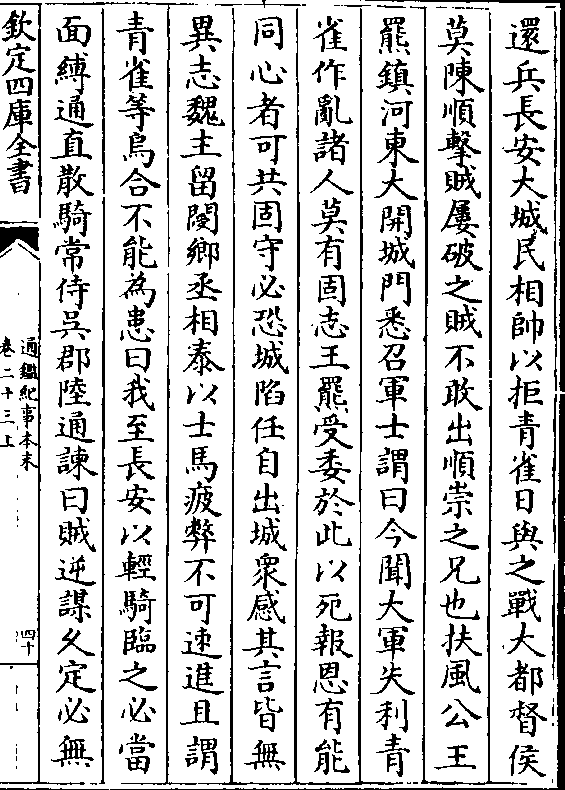 還兵長安大城民相帥以拒青雀日與之戰大都督侯
莫陳順擊賊屢破之賊不敢出順崇之兄也扶風公王
羆鎮河東大開城門悉召軍士謂曰今聞大軍失利青
雀作亂諸人莫有固志王羆受委於此以死報恩有能
同心者可共固守必恐城陷任自出城衆感其言皆無
異志魏主留閿鄉丞相泰以士馬疲弊不可速進且謂
青雀等烏合不能為患曰我至長安以輕騎臨之必當
面縛通直散騎常侍吳郡陸通諫曰賊逆謀久定必無
欽定四庫全書
通鑑紀事本末
卷二十三上
四十